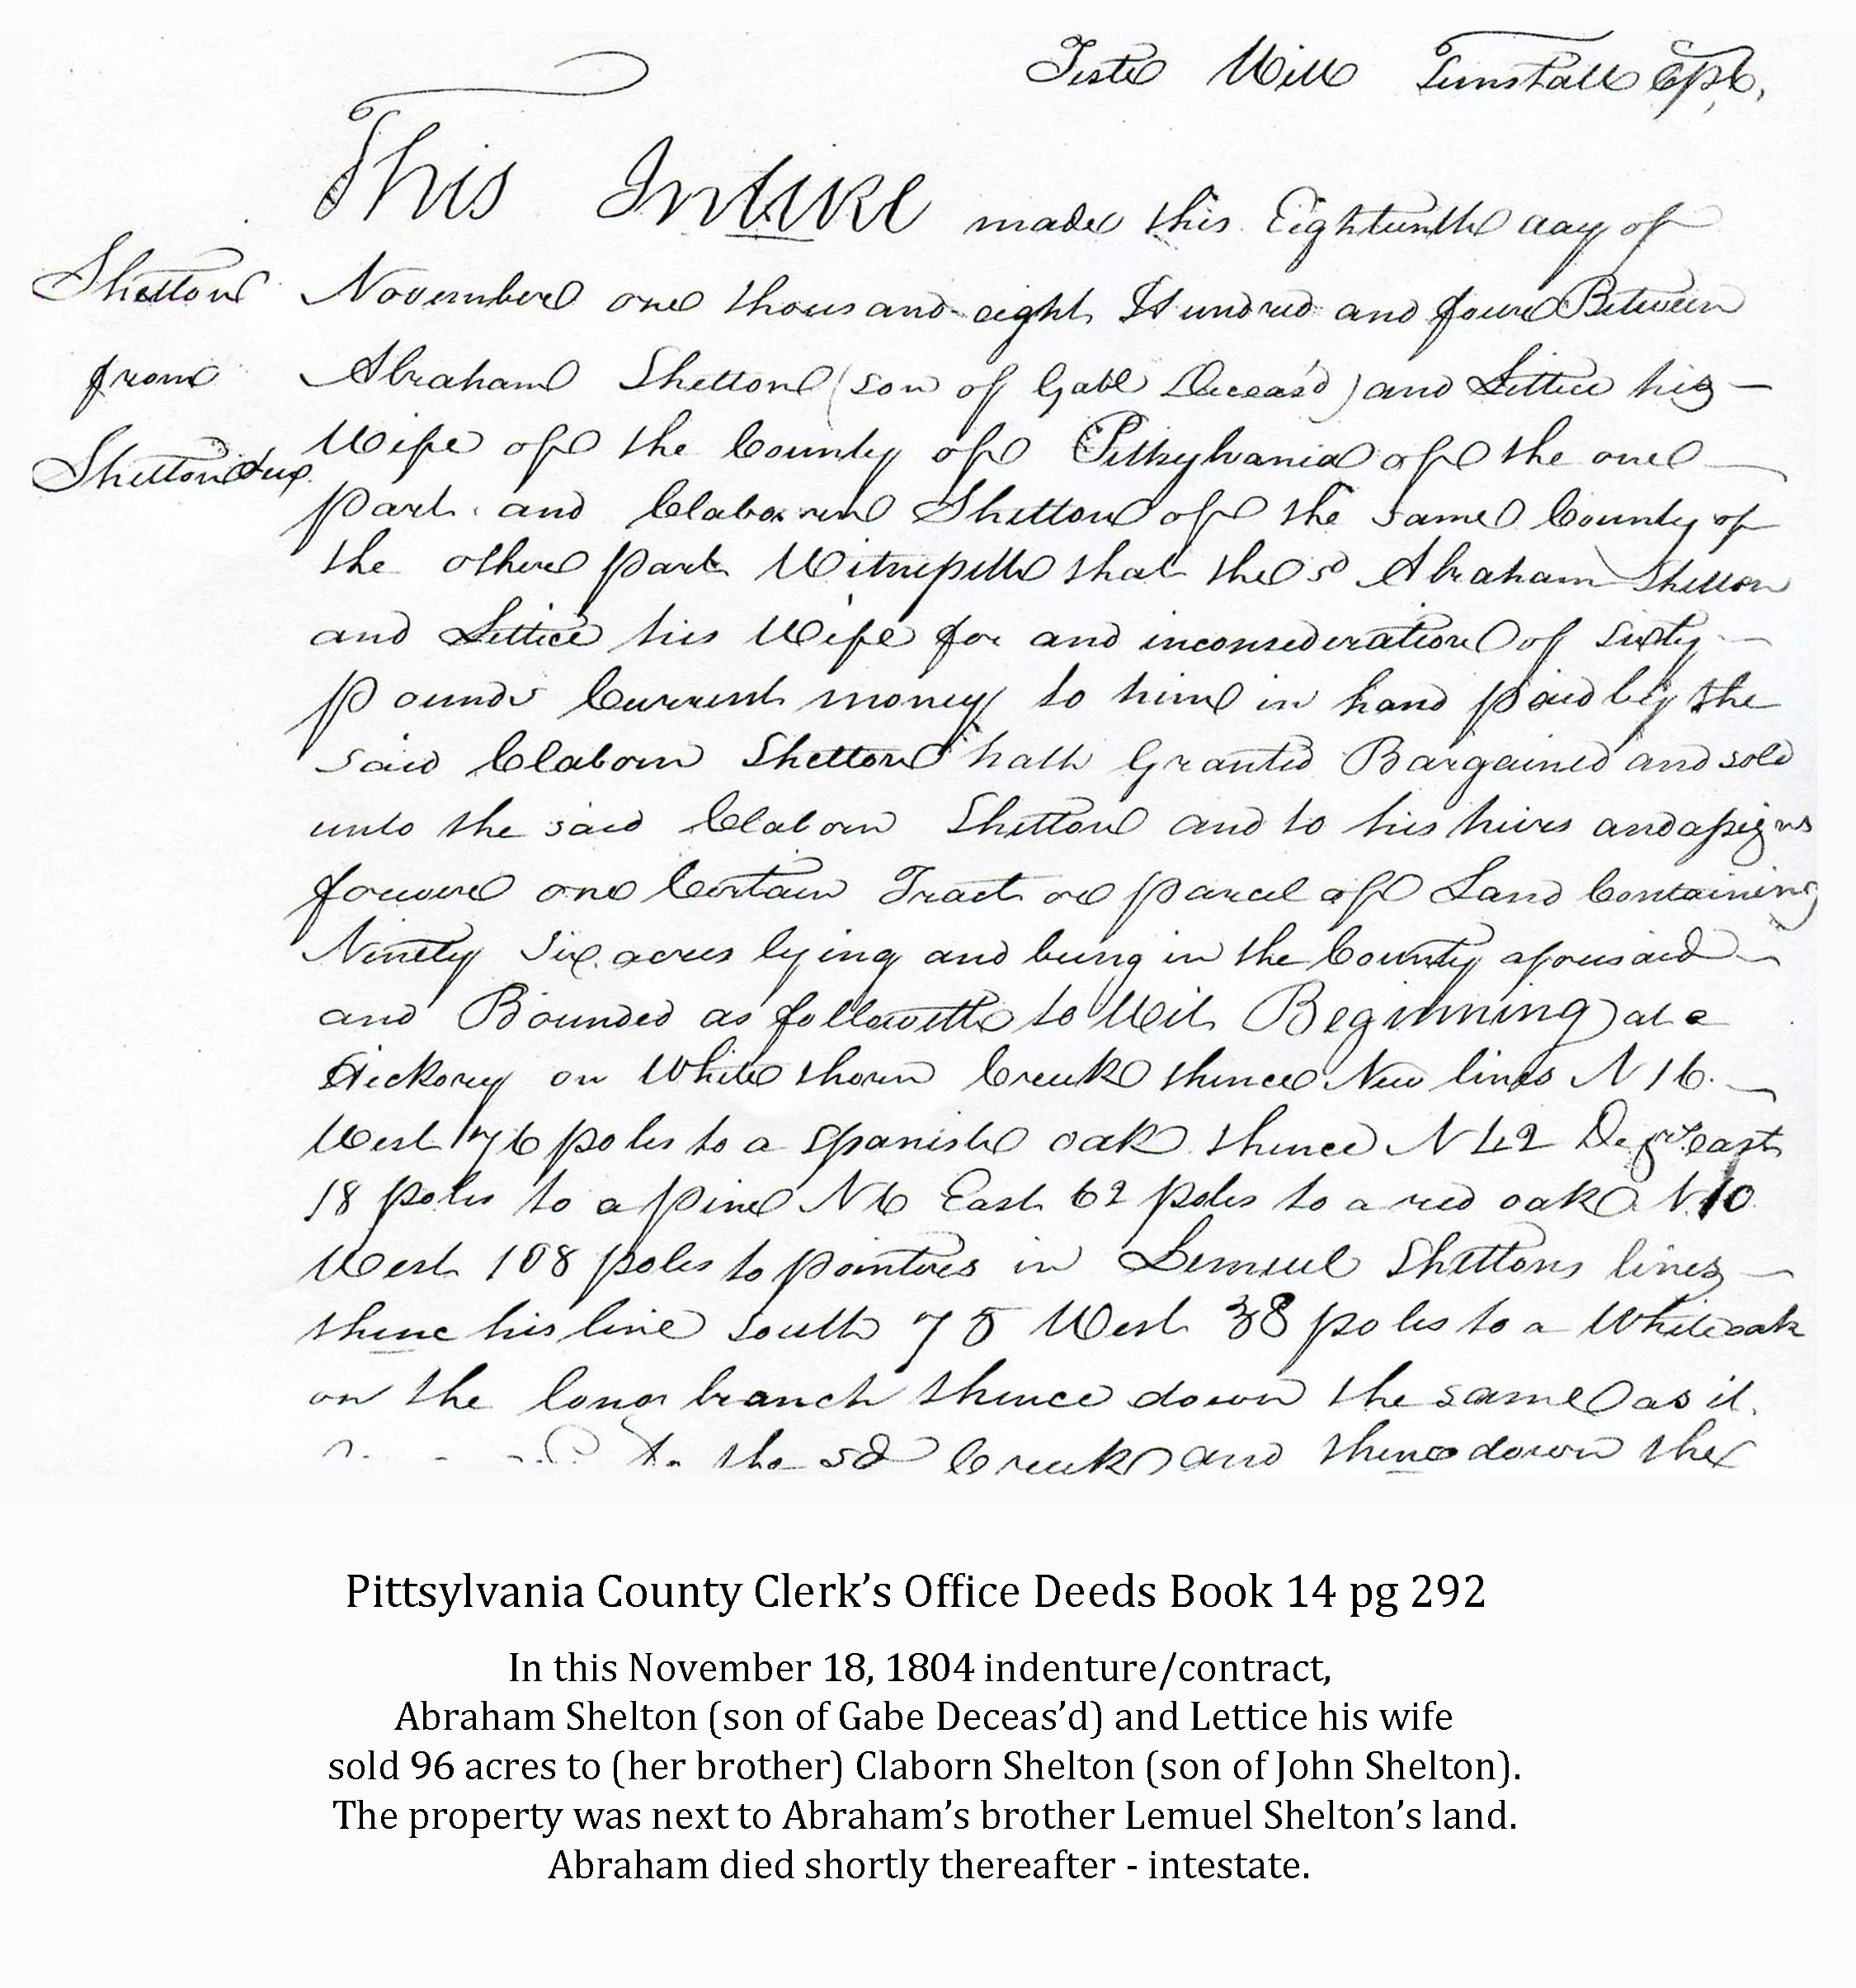 Teste Will Tunstall CPC,
This Inture made this Eighteenth day of
Shelton
November one thousand eight Hundred and four Between
from
Abraham Shelton (son of Gabl Deceas'd) and Lettice his
Shelton
Wife of the County of Pittsylvania of the one
part and Claborn Shelton of the same County of
the other part Witnesseth that the sd Abraham Shelton
and Lettice his Wife for and inconsideration of sixty
pounds Current money to him in hand paid by the
said Claborn Shelton hath Granted Bargained and sold
unto the said Claborn Shelton and to his heirs and assigns
forever one Certain Tract or parcel of Land Containing
Ninety Six acres lying and being in the County aforesaid
and Bounded as followeth to Wit Beginning at a
Hickory on White thorn Creek thence New lines N 16
West 176 poles to a spanish oak thence N 42 Degrs east
18 poles to a pine N 6 East 62 poles to a red oak N 10
West 108 poles to pointers in Lemuel Sheltons lines
thence his line south 75 West 38 poles to a White oak
on the long branch thence down the same as it
to the sd Creek and thence down the
Pittsylvania County Clerk’s Office Deeds Book 14 pg 292
In this November 18, 1804 indenture/contract,
Abraham Shelton (son of Gabe Deceas’d) and Lettice his wife
sold 96 acres to (her brother) Claborn Shelton (son of John Shelton).
The property was next to Abraham’s brother Lemuel Shelton’s land.
Abraham died shortly thereafter - intestate.